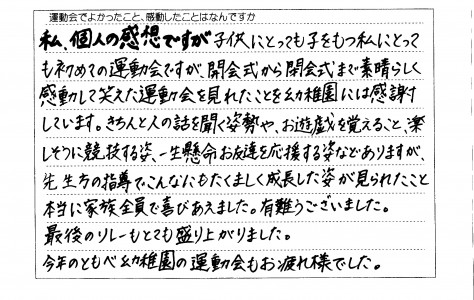 運動会でよかったこと、感動したことはなんですか
私、個人の感想ですが子供にとっても子をもつ私にとって
も初めての運動会ですが、開会式から閉会式まで素晴らしく
感動して笑えた運動会を見れたことを幼稚園には感謝
しています。きちんと人の話を聞く姿勢や、お遊戯を覚えること、楽
しそうに競技する姿、一生懸命お友達を応援する姿などありますが、
先生方の指導でこんなにもたくましく成長した姿が見られたこと
本当に家族全員で喜びあえました。有難うございました。
最後のリレーもとても盛り上がりました。
今年のともべ幼稚園の運動会もお疲れ様でした。